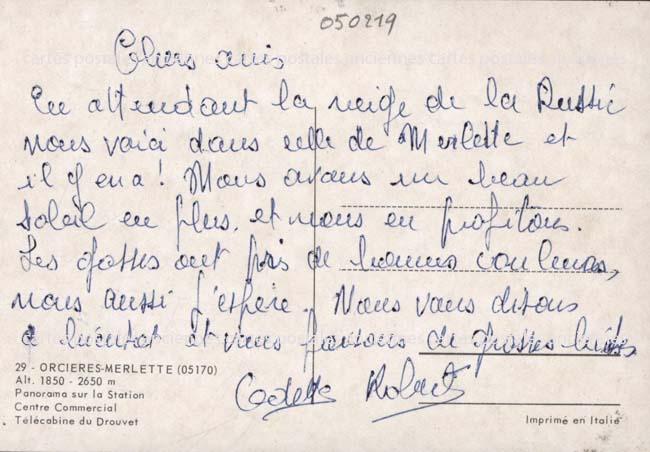 050219
Chers amis
En attendant la neige de la Russie
nous voici dans celle de Merlette et
il y en a! Nous avons un beau
soleil en plus, et nous en profitons.
Les gosses ont pris de bonnes couleurs,
nous aussi j'espère. Nous vous disons
à bientôt et vous faisons de grosses bises
Odette Robert
29 - ORCIERES-MERLETTE (05170)
Alt. 1850 - 2650 m
Panorama sur la Station
Centre Commercial
Télécabine du Drouvet
Imprimé en Italie